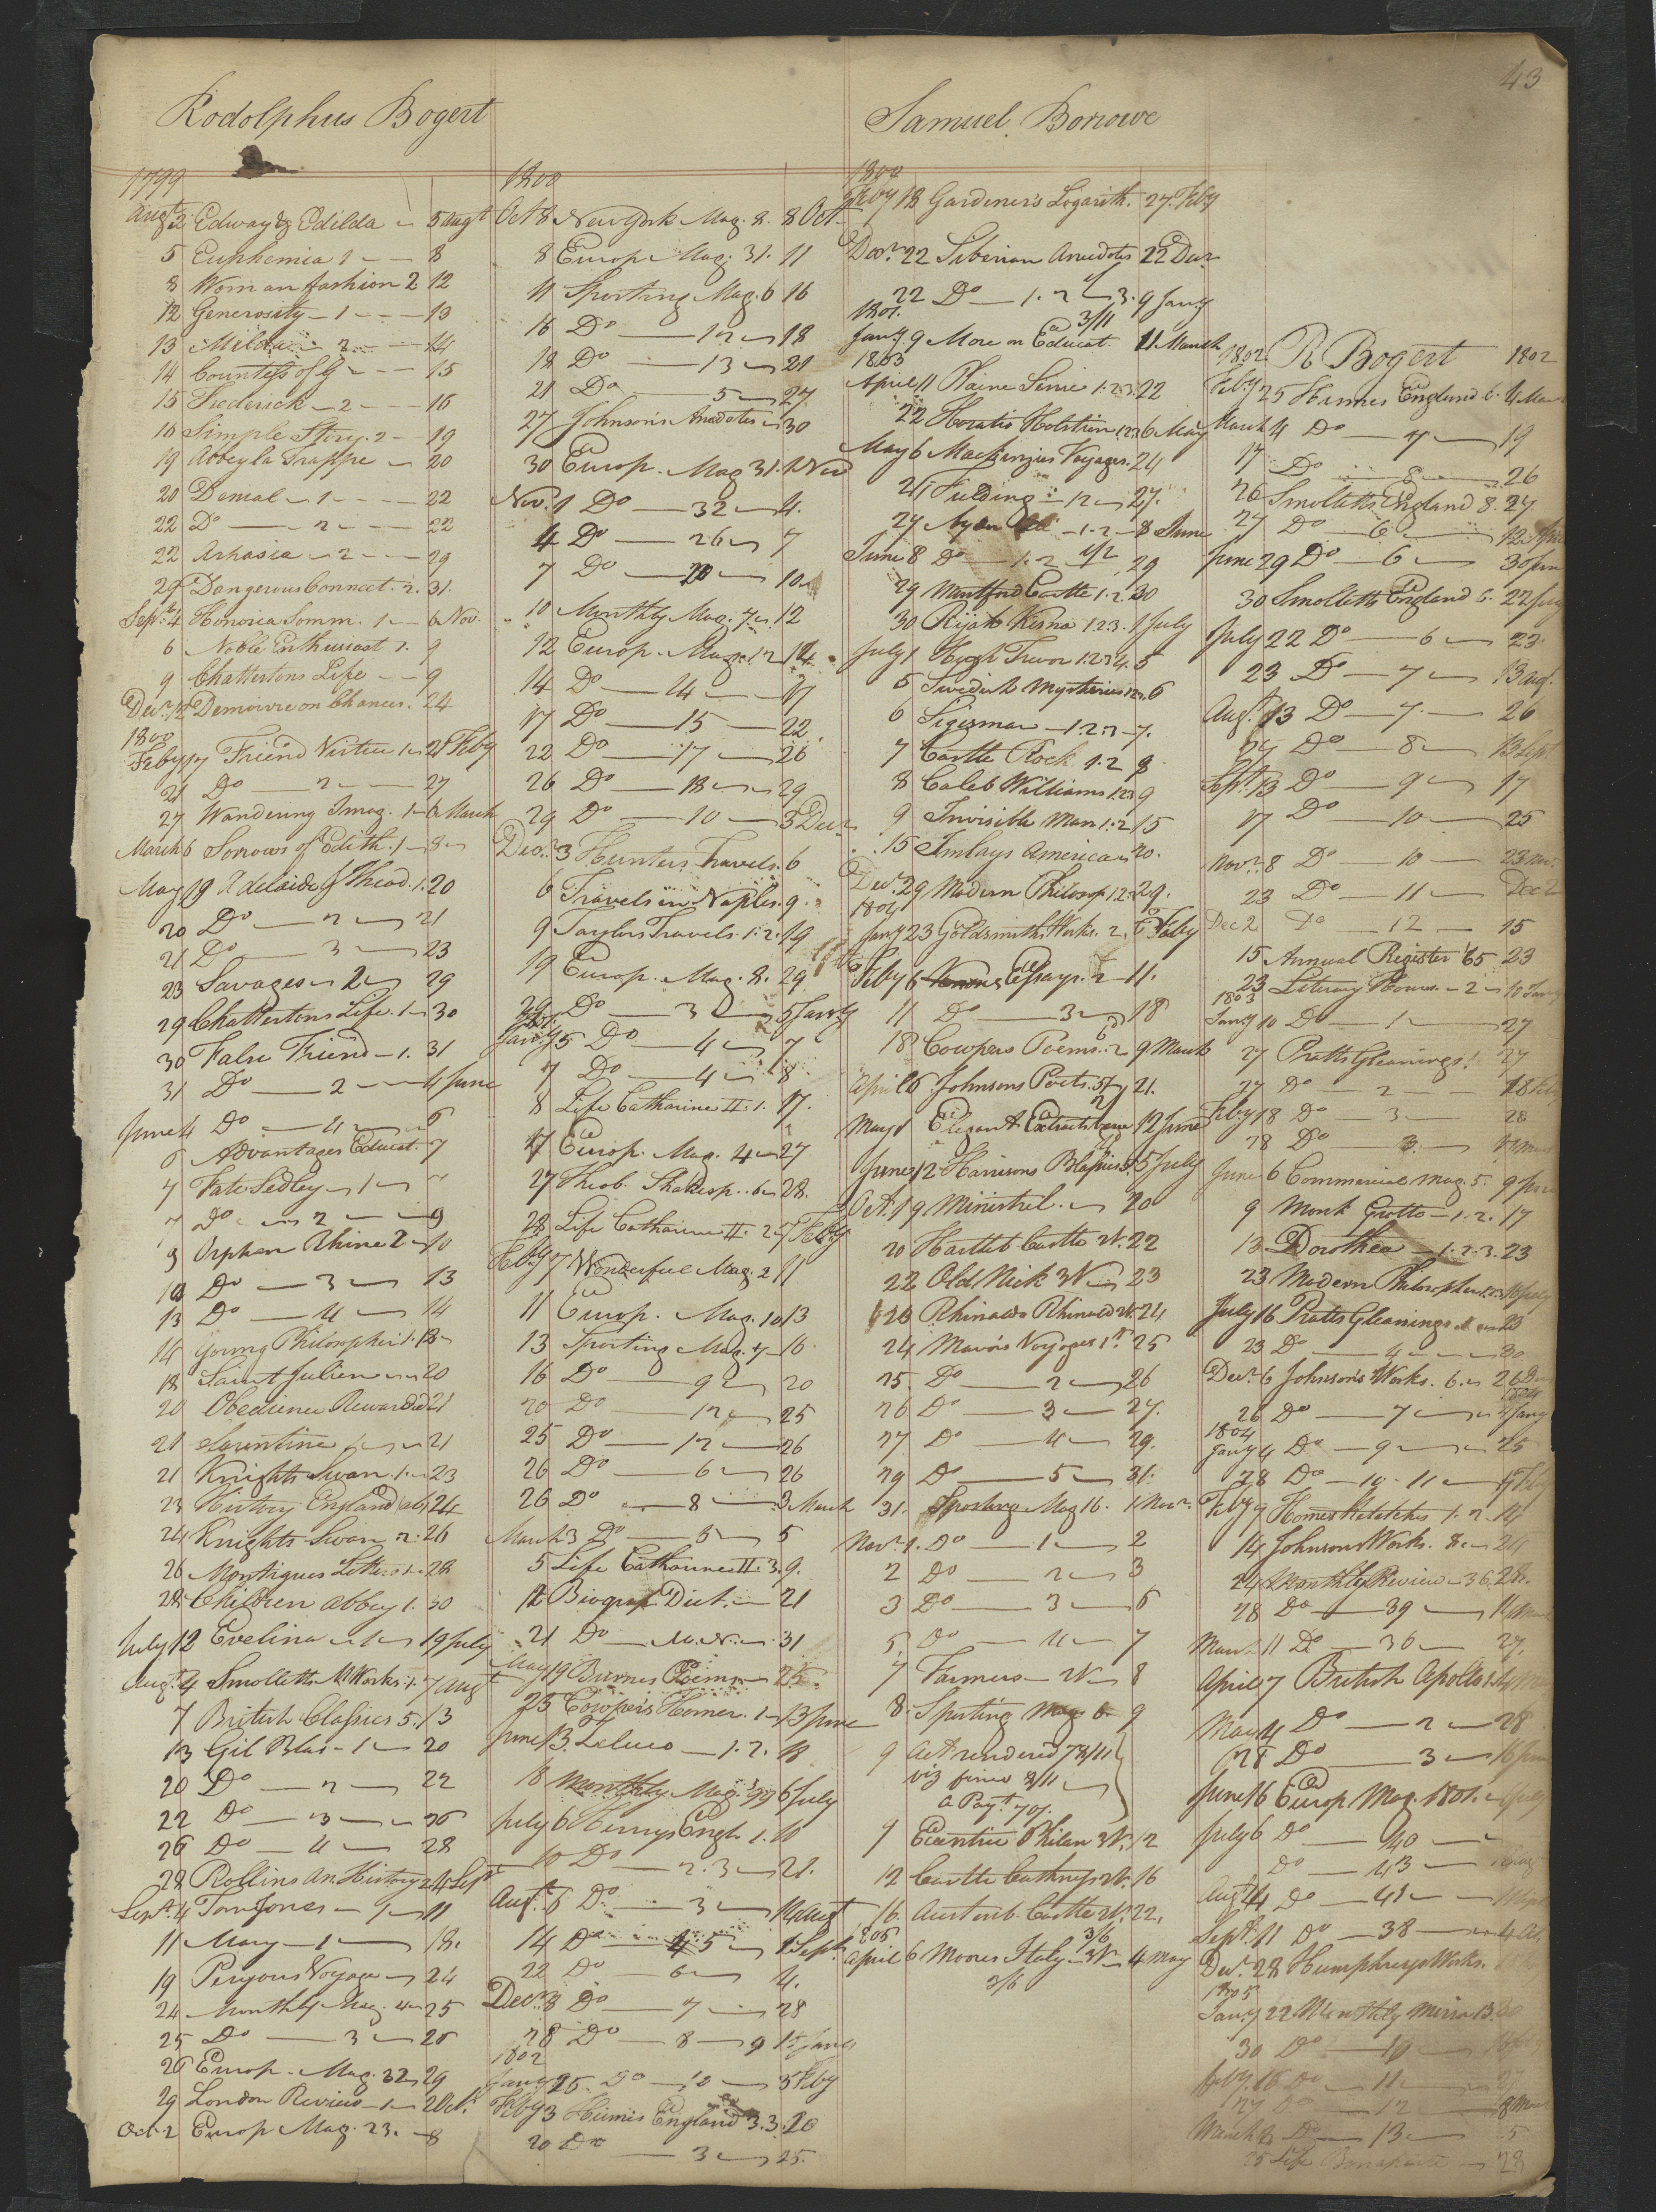 43
Rodolphus Bogert
1799
Augt 2 Edway & Edilda 5 Augt
5 Euphemia 1 8
8 Woman fashion 2 12
12 Generosity 1 13
13 Milda 2 14
14 Countess of G 15
15 Frederick 2 16
16 Simple Story 2 19
19 Abbey la Trappe 20
20 Denial 1 22
22 Do 2 22
22 Arkasia 2 29
29 Dangerous Connect. 2. 31.
Sept. 4 Honoria Somm. 1 6 Nov.
6 Noble Enthusiast 1. 9
9 Chattertons Life 9
Decr. 12 Demoivre on Chances. 24
1800
Feby 17 Friend Virtue 1 21 Feby
21 Do 2 27
27 Wandering Imag. 1 6 March
March 6 Sorrows of Edith. 1 8
May 19 Adelaide & Theod. 1. 20
20 Do 2 21
21 Do 3 23
23 Savages 2 29
29 Chattertons Life. 1 30
30 False Friend 1. 31
31 Do 2 4 June
June 4 Do 4 6
6 Advantages Educat. 7
7 Fate Sedley 1
7 Do 2 9
9 Orphan Rhine 2 10
10 Do 3 13
13 Do 4 14
14 Young Philosopher 1. 18
18 Saint Julien 20
20 Obedience Rewarded 21
21 21
21 Knights Swan. 1. 23
23 History England 24
24 Knights Swan 2. 26
26 Montagues Letters 1. 28
28 Children Abbey 1. 30
July 12 Evelina 1 19 July
Augt. 4 Smolletts M. Works. 1. 7 Augt
7 British Classics 5. 13
13 Gil Blas 1 20
20 Do 2 22
22 Do 3 26
26 Do 4 28
28 Rollins An. History 2 4 Sept
Sept. 4 Tom Jones 1 11
11 Mary 1 18.
19 Voyage 24
24 Monthly Mag. 4 25
25 Do 3 26
26 Europ. Mag. 32 29
29 London Review 1 2 Oct.
Oct 2 Europ Mag. 23. 8
1800
Oct 8 New York Mag. 8. 8 Oct
8 Europ. Mag. 31. 11
11 Sporting Mag. 6 16
16 Do 12 18
18 Do 13 21
21 Do 5 27
27 Johnson's Anecdotes 30
30 Europ. Mag 31. 1 Nov
Nov. 1 Do 32 4.
4 Do 26 7
7 Do 10
10 Monthly Mag. 7 12
12 Europ. Mag. 12 14
14 Do 4 17
17 Do 15 22
22 Do 17 26
26 Do 18 29
29 Do 10 3 Decr
Decr. 3 Hunters Travels. 6
6 Travels in Naples. 9
9 Taylors Travels. 1. 2. 19
19 Europ. Mag. 8. 29
29 Do 3 5 Jany
Jany 5 Do 4 7
7 Do 4 8
8 Life Catharine II. 1. 17.
17 Europ. Mag. 4 27
27 Theob. Shakesp. 6 28.
28 Life Catharine II. 2 7 Feby
Feby 7 Wonderful Mag. 2 11
11 Europ. Mag. 10 13
13 Sporting Mag. 7 16
16 Do 9 20
20 Do 12 25
25 Do 12 26
26 Do 6 26
26 Do 8 3 March
March 3 Do 5 5
5 Life Catharine II. 3. 9.
12 Biograp. Dict. 21
21 Do M. N. 31
May 19 Burnes Poems 25
25 Cowper's Homer. 1 13 June
June 13. Zeluco 1. 2. 18
18 Monthly Mag. 99 6 July
July 6 Henrys Engl. 1. 10
10 Do 2. 3 21.
Augt. 6 Do 3 14 Augt
14 Do 4 5 1 Sept.
22 Do 6 4.
Decr. 8 Do 7 28
28 Do 8 9 15 Jany
1802
Jany 25. Do 10 3 Feby
Feby 3 Humes England 3. 3. 20
20 Do 3 25.
Samuel Borrowe
Feby 18 Gardener's Logarith. 27. Feby
Decr. 22 Siberian Anecdotes 22 Decr
22 Do 1. 2 & 3. 9 Jany
1801.
3/11
Jany. 9 More on Educat. 11 March
1803
April 11 Plaine Sense 1. 2. 3 22
22 Horatio Holstein 1. 2. 3 6 May
May 6 Mackenzies Voyages. 24
24 Fielding 12 27.
27 1. 2 8 June
June 8 Do 1. 2 29
29 Montford Castle 1. 2. 30
30 Rajah Kisna 1. 2. 3. 1 July
July 1 Hugh Trevor 1. 2. 3. 4. 5
5 Swedish Mysteries 6
6 Sigismar 1. 2. 3 7.
7 Castle Rock 1. 2 8
8 Caleb Williams 1. 2. 9
9 Invisible Man 1. 2 15
15 Imlays America 20.
Decr. 29 Modern Philosop. 1. 2. 29.
1804
Jany 23 Goldsmiths Works. 2. 6 Feby
Feby 6 Essays. 2 11.
11 Do 3 18
18 Cowpers Poems. 2 9 March
April 6 Johnsons Poets. 21.
May 1 Elegant Extracts 12 June
June 12 Harrisons 5 July
Oct. 19 Minstrel. 20
20 Hartleb Castle 2V. 22
22 Old Nick 3V 23
23 Rhinaldo Rhinaldi 2V. 24
24 Mavors Voyages 1st. 25
25. Do 2 26
26 Do 3 27.
27 Do 4 29.
29 Do 5 31.
31. Sporting Mag 16. 1 Novr.
Novr 1. Do 1 2
2 Do 2 3
3 Do 3 5
5. Do 4 7
7 Farmers 2V 8
8. Sporting Mag. 6. 9
9 Act rendered 78/11
viz fines 8/11
a Payt. 70/.
9 Eccentric Philan 3V. 12
12 Castle 2V. 16
16. Austenb. Castle 2V. 22.
1805
3/6
April 6 Moores Italy 3V 4 May
3/6
R Bogert
1802 1802
Feby 25 Humes England 6. 4 Mar
March 4 Do 7 19
17 Do 8 26
26 Smolletts England 8. 27.
27 Do 6
June 29 Do 6 30 Jun
30 Smolletts England 6. 22 July
July 22 Do 6 23
23 Do 7 13 Aug.
Aug. 13 Do 7 26
27 Do 8 13 Sept
Sept. 13 Do 9 17
17 Do 10 25
Novr. 8 Do 10 23 Nov.
23 Do 11 Dec 2
Dec 2 Do 12 15
15 Annual Register '65 23
23 Literary Hours 2 10 Jany
1803
Jany 10 Do 1 27
27 Pratts Gleanings 1. 27
27 Do 2 18 Feb
Feby 18 Do 3 28
28 Do 3.
June 6 Commercial Mag. 5. 9 Jun
9 Monk Grotto 1. 2. 17
13 Dorothea 1. 2. 3. 23
23 Modern Philosopher 16 July
July 16 Pratts Gleanings 23
23 Do 4 30
Decr. 6 Johnson's Works. 6. 26 Dec
1804
26 Do 7 4 Jany
1804
Jany 4 Do 9 25
28 Do 10 11 9 Feb
Feby 9 Homes Sketches 1. 2. 14
14 Johnsons Works. 8. 24
24 Monthly Review 36. 28.
28 Do 39
March 11 Do 36 27.
April 7 British Apollo 1.
May 4 Do 2 28
28 Do 3 16 Jun
June 16 Europ Mag. 1801. July
July 6 Do 40
Do 43
Augt 4 Do 41
Sept. 11 Do 38 4 Oct.
Decr. 28 Humphreys Works.
1805
Jany 22 Monthly Mirror 13. 30
30 Do 10
Feby. 16 Do 11 27
27 Do 12 8 Mar
March 8 Do 13 5
25 Life Bonaparte 28